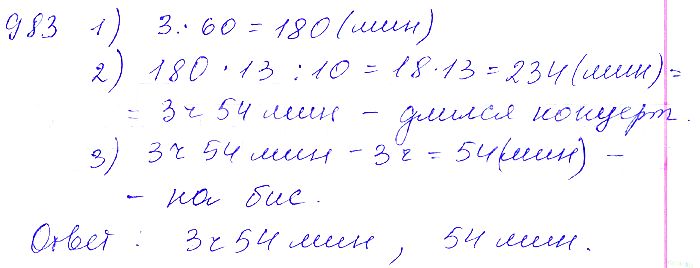 983 1) 3 · 60 = 180 (мин)
2) 180 · 13 : 10 = 18 · 13 = 234 (мин) =
= 3 ч 54 мин – длился концерт.
3) 3 ч 54 мин – 3 ч = 54 (мин) –
– на бис.
Ответ : 3 ч 54 мин , 54 мин.